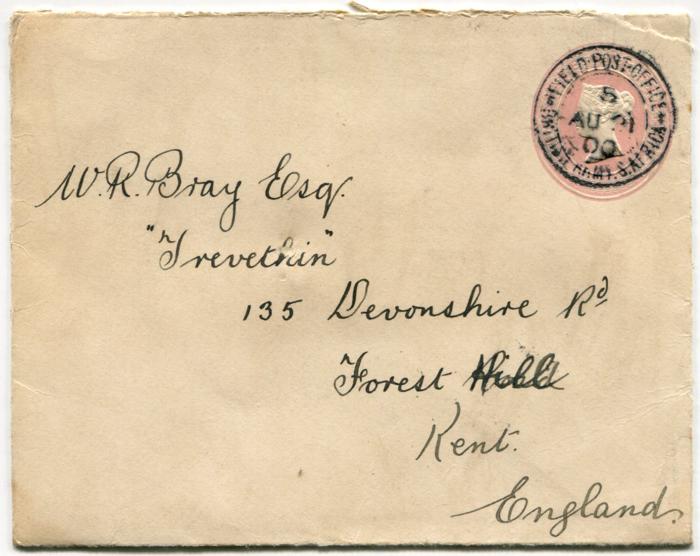 FIELD·POST·OFFICE
BRITISH ARMY. S. AFRICA
5
AU 21
00
W. R. Bray Esq.
"Trevethin"
135 Devonshire Rd
Forest Hill
Kent.
England.